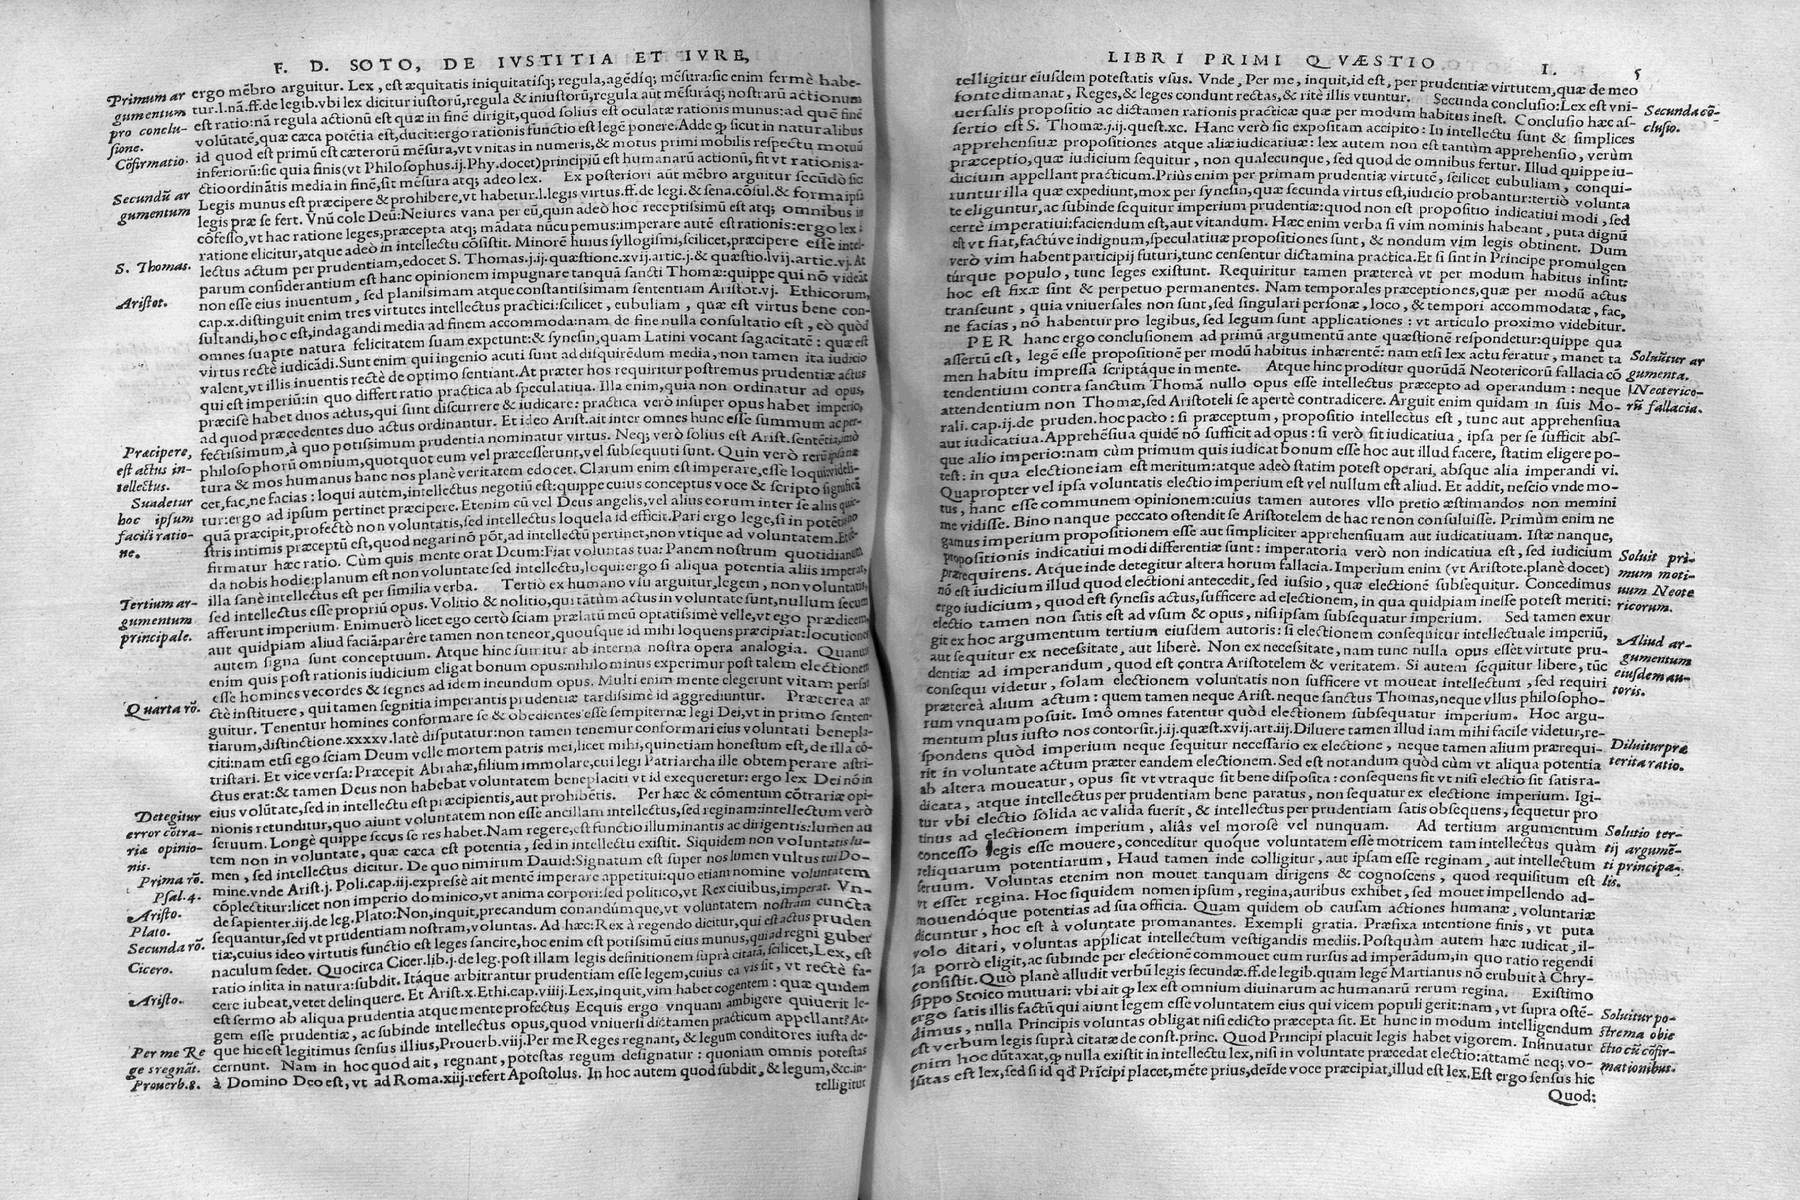 F. D. SOTO, DE IVSTITIA ET IVRE,
Primum ar
gumentum
pro conclu-
sione.
Cōfirmatio.
Secundū ar
gumentum
S. Thomas.
Aristot.
Præcipere,
est actus in-
tellectus.
Suadetur
hoc ipsum
facili ratio-
ne.
Tertium ar-
gumentum
principale.
Quarta rō.
Detegitur
error cōtra-
riæ opinio-
nis.
Prima rō.
Psal. 4.
Aristo.
Plato.
Secunda rō.
Cicero.
Aristo.
Per me Re
ges regnāt.
Prouerb. 8.
ergo mēbro arguitur. Lex, est æquitatis iniquitatisq; regula, agēdiq; mēsura: sic enim fermè habe-
tur. l. nā. ff. de legib. vbi lex dicitur iustorū, regula & iniustorū, regula aūt mēsuráq; nostrarū actionum
est ratio: nā regula actionū est quæ in finē dirigit, quod solius est oculatæ rationis munus: ad quē finē
volūtatē, quæ cæca potētia est, ducit: ergo rationis functio est legē ponere. Adde ꝙ sicut in naturalibus
id quod est primū est cæterorū mēsura, vt vnitas in numeris, & motus primi mobilis respectu motuū
inferiorū: sic quia finis (vt Philosophus. ij. Phy. docet) principiū est humanarū actionū, fit vt rationis a-
ctio ordinātis media in finē, sit mēsura atq; adeo lex. Ex posteriori aūt mēbro arguitur secūdò sic
Legis munus est præcipere & prohibere, vt habetur. l. legis virtus. ff. de legi. & sena. cōsul. & forma ipsa
legis præ se fert. Vnū cole Deū: Ne iures vana per eū, quin adeò hoc receptissimū est atq; omnibus in
cōfesso, vt hac ratione leges, præcepta atq; mādata nūcupemus: imperare autē est rationis: ergo lex à
ratione elicitur, atque adeò in intellectu cōsistit. Minorē huius syllogismi, scilicet, præcipere esse intel-
lectus actum per prudentiam, edocet S. Thomas. j. ij. quæstione. xvij. artic. j. & quæstio. lvij. artic. vj. At
parum considerantium est hanc opinionem impugnare tanquā sancti Thomæ: quippe qui nō videāt
non esse eius inuentum, sed planissimam atque constantissimam sententiam Aristot. vj. Ethicorum,
cap. x. distinguit enim tres virtutes intellectus practici: scilicet, eubuliam, quæ est virtus bene con-
sultandi, hoc est, indagandi media ad finem accommoda: nam de fine nulla consultatio est, eò quòd
omnes suapte natura felicitatem suam expetunt: & synesin, quam Latini vocant sagacitatē: quæ est
virtus rectè iudicādi. Sunt enim qui ingenio acuti sunt ad disquirēdum media, non tamen ita iudicio
valent, vt illis inuentis rectè de optimo sentiant. At præter hos requiritur postremus prudentiæ actus
qui est imperiū: in quo differt ratio practica ab speculatiua. Illa enim, quia non ordinatur ad opus,
præcisè habet duos actus, qui sunt discurrere & iudicare: practica verò insuper opus habet imperio,
ad quod præcedentes duo actus ordinantur. Et ideo Arist. ait inter omnes hunc esse summum ac per-
fectissimum, à quo potissimum prudentia nominatur virtus. Neq; verò solius est Arist. sentētia, imò
philosophorū omnium, quotquot eum vel præcesserunt, vel subsequuti sunt. Quin verò rerū ipsa na
tura & mos humanus hanc nos planè veritatem edocet. Clarum enim est imperare, esse loqui: videli-
cet, fac, ne facias: loqui autem, intellectus negotiū est: quippe cuius conceptus voce & scripto significā
tur: ergo ad ipsum pertinet præcipere. Etenim cū vel Deus angelis, vel alius eorum inter se alijs quic-
quā præcipit, profectò non voluntatis, sed intellectus loquela id efficit. Pari ergo lege, si in potētijs no
stris intimis præceptū est, quod negari nō pōt, ad intellectū pertinet, non vtique ad voluntatem. Et cō-
firmatur hæc ratio. Cùm quis mente orat Deum: Fiat voluntas tua: Panem nostrum quotidianum
da nobis hodie: planum est non voluntate sed intellectu, loqui: ergo si aliqua potentia aliis imperat,
illa sanè intellectus est per similia verba. Tertiò ex humano vsu arguitur, legem, non voluntatis,
sed intellectus esse propriū opus. Volitio & nolitio, qui tātùm actus in voluntate sunt, nullum secum
afferunt imperium. Enimuerò licet ego certò sciam prælatū meū optatissimè velle, vt ego prædicem,
aut quidpiam aliud faciā: parēre tamen non teneor, quousque id mihi loquens præcipiat: locutiones
autem signa sunt conceptuum. Atque hinc sumitur ab interna nostra opera analogia. Quanuis
enim quis post rationis iudicium eligat bonum opus: nihilominus experimur post talem electionem
esse homines vecordes & segnes ad idem ineundum opus. Multi enim mente elegerunt vitam perfe
ctè instituere, qui tamen segnitia imperantis prudentiæ tardissimè id aggrediuntur. Præterea ar
guitur. Tenentur homines conformare se & obedientes esse sempiternæ legi Dei, vt in primo senten-
tiarum, distinctione. xxxxv. latè disputatur: non tamen tenemur conformari eius voluntati benepla-
citi: nam etsi ego sciam Deum velle mortem patris mei, licet mihi, quinetiam honestum est, de illa cō-
tristari. Et vice versa: Præcepit Abrahæ, filium immolare, cui legi Patriarcha ille obtemperare astri-
ctus erat: & tamen Deus non habebat voluntatem beneplaciti vt id exequeretur: ergo lex Dei nō in
eius volūtate, sed in intellectu est præcipientis, aut prohibētis. Per hæc & cōmentum cōtrariæ opi-
nionis retunditur, quo aiunt voluntatem non esse ancillam intellectus, sed reginam: intellectum verò
seruum. Longè quippe secus se res habet. Nam regere, est functio illuminantis ac dirigentis: lumen au
tem non in voluntate, quæ cæca est potentia, sed in intellectu existit. Siquidem non voluntatis lu-
men, sed intellectus dicitur. De quo nimirum Dauid: Signatum est super nos lumen vultus tui Do-
mine. vnde Arist. j. Poli. cap. iij. expressè ait mentē imperare appetitui: quo etiam nomine voluntatem
cōplectitur: licet non imperio dominico, vt anima corpori: sed politico, vt Rex ciuibus, imperat. Vn-
de sapienter. iij. de leg. Plato: Non, inquit, precandum conandúmque, vt voluntatem nostram cuncta
sequantur, sed vt prudentiam nostram, voluntas. Ad hæc: Rex à regendo dicitur, qui est actus pruden
tiæ, cuius ideo virtutis functio est leges sancire, hoc enim est potissimū eius munus, qui ad regni guber
naculum sedet. Quocirca Cicer. lib. j. de leg. post illam legis definitionem suprà citatā, scilicet, Lex, est
ratio insita in natura: subdit. Itáque arbitrantur prudentiam esse legem, cuius ea vis sit, vt rectè fa-
cere iubeat, vetet delinquere. Et Arist. x. Ethi. cap. viiij. Lex, inquit, vim habet cogentem: quæ quidem
est sermo ab aliqua prudentia atque mente profectus Ecquis ergo vnquam ambigere quiuerit le-
gem esse prudentiæ, ac subinde intellectus opus, quod vniuersi dictamen practicum appellant? At-
que hic est legitimus sensus illius, Prouerb. viij. Per me Reges regnant, & legum conditores iusta de-
cernunt. Nam in hoc quod ait, regnant, potestas regum designatur: quoniam omnis potestas
à Domino Deo est, vt ad Roma. xiij. refert Apostolus. In hoc autem quod subdit, & legum, &c. in-
telligitur
LIBRI PRIMI QVÆSTIO I. 5
telligitur eiusdem potestatis vsus. Vnde, Per me, inquit, id est, per prudentiæ virtutem, quæ de meo
fonte dimanat, Reges, & leges condunt rectas, & ritè illis vtuntur. Secunda conclusio: Lex est vni-
uersalis propositio ac dictamen rationis practicæ quæ per modum habitus inest. Conclusio hæc as-
sertio est S. Thomæ. j. ij. quest. xc. Hanc verò sic expositam accipito: In intellectu sunt & simplices
apprehensiuæ propositiones atque aliæ iudicatiuæ: lex autem non est tantùm apprehensio, verùm
præceptio, quæ iudicium sequitur, non qualecunque, sed quod de omnibus fertur. Illud quippe iu-
dicium appellant practicum. Priùs enim per primam prudentiæ virtutē, scilicet eubuliam, conqui-
runtur illa quæ expediunt, mox per synesin, quæ secunda virtus est, iudicio probantur: tertiò volunta
te eliguntur, ac subinde sequitur imperium prudentiæ: quod non est propositio indicatiui modi, sed
certè imperatiui: faciendum est, aut vitandum. Hæc enim verba si vim nominis habeant, puta dignū
est vt fiat, factúve indignum, speculatiuæ propositiones sunt, & nondum vim legis obtinent. Dum
verò vim habent participij futuri, tunc censentur dictamina practica. Et si sint in Principe promulgen
túrque populo, tunc leges existunt. Requiritur tamen prætereà vt per modum habitus insint:
hoc est fixæ sint & perpetuo permanentes. Nam temporales præceptiones, quæ per modū actus
transeunt, quia vniuersales non sunt, sed singulari personæ, loco, & tempori accommodatæ, fac,
ne facias, nō habentur pro legibus, sed legum sunt applicationes: vt articulo proximo videbitur.
PER hanc ergo conclusionem ad primū argumentū ante quæstionē respondetur: quippe qua
assertū est, legē esse propositionē per modū habitus inhærentē: nam etsi lex actu feratur, manet ta
men habitu impressa scriptáque in mente. Atque hinc proditur quorūdā Neotericorū fallacia cō
tendentium contra sanctum Thomā nullo opus esse intellectus præcepto ad operandum: neque
attendentium non Thomæ, sed Aristoteli se apertè contradicere. Arguit enim quidam in suis Mo-
rali. cap. ij. de pruden. hoc pacto: si præceptum, propositio intellectus est, tunc aut apprehensiua
aut iudicatiua. Apprehēsiua quidē nō sufficit ad opus: si verò sit iudicatiua, ipsa per se sufficit abs-
que alio imperio: nam cùm primum quis iudicat bonum esse hoc aut illud facere, statim eligere po-
test: in qua electione iam est meritum: atque adeò statim potest operari, absque alia imperandi vi.
Quapropter vel ipsa voluntatis electio imperium est vel nullum est aliud. Et addit, nescio vnde mo-
tus, hanc esse communem opinionem: cuius tamen autores vllo pretio æstimandos non memini
me vidisse. Bino nanque peccato ostendit se Aristotelem de hac re non consuluisse. Primùm enim ne
gamus imperium propositionem esse aut simpliciter apprehensiuam aut iudicatiuam. Istæ nanque,
propositionis indicatiui modi differentiæ sunt: imperatoria verò non indicatiua est, sed iudicium
prærequirens. Atque inde detegitur altera horum fallacia. Imperium enim (vt Aristote. planè docet)
nō est iudicium illud quod electioni antecedit, sed iussio, quæ electionē subsequitur. Concedimus
ergo iudicium, quod est synesis actus, sufficere ad electionem, in qua quidpiam inesse potest meriti:
electio tamen non satis est ad vsum & opus, nisi ipsam subsequatur imperium. Sed tamen exur
git ex hoc argumentum tertium eiusdem autoris: si electionem consequitur intellectuale imperiū,
aut sequitur ex necessitate, aut liberè. Non ex necessitate, nam tunc nulla opus esset virtute pru-
dentiæ ad imperandum, quod est contra Aristotelem & veritatem. Si autem sequitur libere, tūc
consequi videtur, solam electionem voluntatis non sufficere vt moueat intellectum, sed requiri
prætereà alium actum: quem tamen neque Arist. neque sanctus Thomas, neque vllus philosopho-
rum vnquam posuit. Imò omnes fatentur quòd electionem subsequatur imperium. Hoc argu-
mentum plus iusto nos contorsit. j. ij. quæst. xvij. art. iij. Diluere tamen illud iam mihi facile videtur, re-
spondens quòd imperium neque sequitur necessario ex electione, neque tamen alium prærequi-
rit in voluntate actum præter eandem electionem. Sed est notandum quòd cùm vt aliqua potentia
ab altera moueatur, opus sit vt vtraque sit bene disposita: consequens fit vt nisi electio sit satis ra-
dicata, atque intellectus per prudentiam bene paratus, non sequatur ex electione imperium. Igi-
tur vbi electio solida ac valida fuerit, & intellectus per prudentiam satis obsequens, sequetur pro
tinus ad electionem imperium, aliâs vel morosè vel nunquam. Ad tertium argumentum
concesso legis esse mouere, conceditur quoque voluntatem esse motricem tam intellectus quàm
reliquarum potentiarum, Haud tamen inde colligitur, aut ipsam esse reginam, aut intellectum
seruum. Voluntas etenim non mouet tanquam dirigens & cognoscens, quod requisitum est
vt esset regina. Hoc siquidem nomen ipsum, regina, auribus exhibet, sed mouet impellendo ad-
mouendóque potentias ad sua officia. Quam quidem ob causam actiones humanæ, voluntariæ
dicuntur, hoc est à voluntate promanantes. Exempli gratia. Præfixa intentione finis, vt puta
volo ditari, voluntas applicat intellectum vestigandis mediis. Postquàm autem hæc iudicat, il-
la porrò eligit, ac subinde per electionem commouet eum rursus ad imperādum, in quo ratio regendi
consistit. Quò planè alludit verbū legis secundæ. ff. de legib. quam legē Martianus nō erubuit à Chry-
sippo Stoico mutuari: vbi ait ꝙ lex est omnium diuinarum ac humanarū rerum regina. Existimo
ergo satis illis factū qui aiunt legem esse voluntatem eius qui vicem populi gerit: nam, vt supra ostē-
dimus, nulla Principis voluntas obligat nisi edicto præcepta sit. Et hunc in modum intelligendum
est verbum legis suprà citatæ de const. princ. Quod Principi placuit legis habet vigorem. Insinuatur
enim hoc dūtaxat, ꝙ nulla existit in intellectu lex, nisi in voluntate præcedat electio: attamē neq; vo-
lūtas est lex, sed si id qđ Prīcipi placet, mēte prius, deīde voce præcipiat, illud est lex. Est ergo sensus hic
Quod:
Secunda cō-
clusio.
Soluūtur ar
gumenta.
Neoterico-
rū fallacia.
Soluit pri-
mum moti-
uum Neote
ricorum.
Aliud ar-
gumentum
eiusdem au-
toris.
Diluitur præ
terita ratio.
Solutio ter-
tij argumē-
ti principa-
lis.
Soluitur po-
strema obie
ctio cū cōfir-
mationibus.